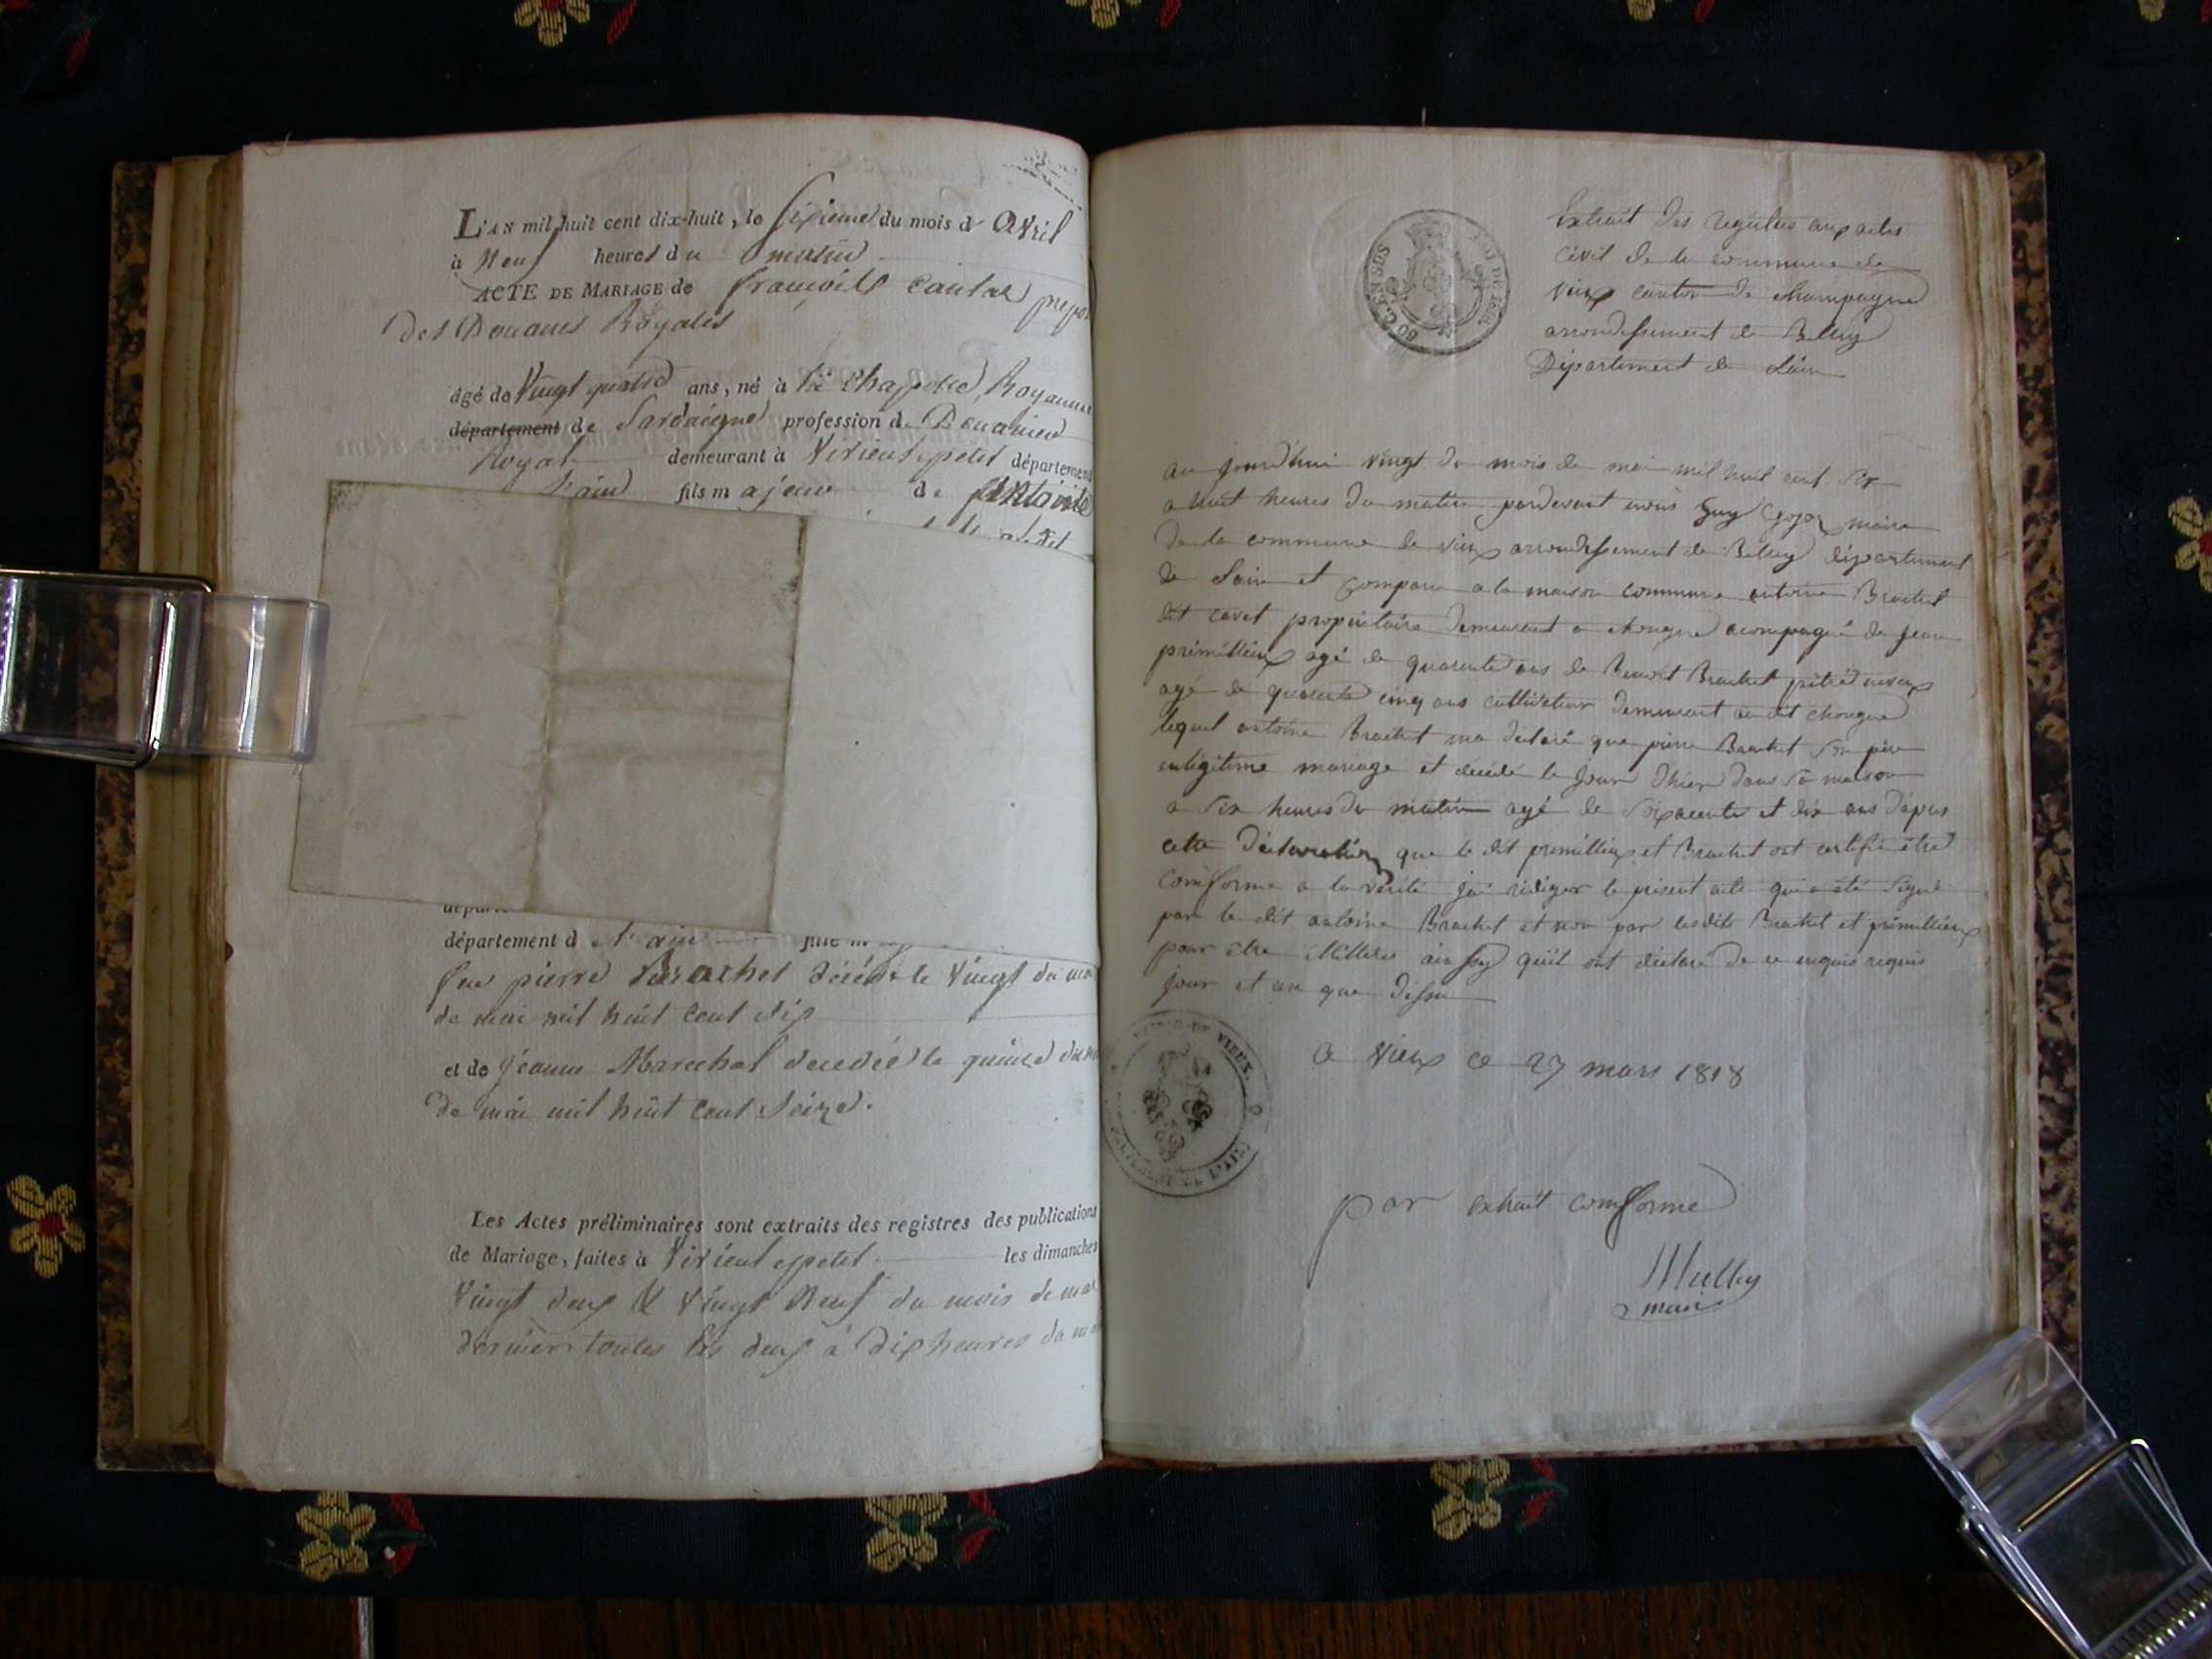 L'AN mil huit cent dix-huit, le sixieme du mois d' Avril
à Neuf heures du matin
ACTE DE MARIAGE de françois Cantal prepo
des Douanes Royales
âgé de Vingt quatre ans, né à la Chapelle, Royaume
département de Sardaigne profession de Douanier
Royal demeurant à Virieulepetit département
l'ain fils majeur de
département d l'ain fille m
feu pierre Brachet décédé le Vingt du moi
de mai mil huit cent dix
et de jeanne Marechal decedée le quinze du m
de mai mil huit cent seize.
Les Actes préliminaires sont extraits des registres des publications
de Mariage, faites à Virieulepetit les dimanches
Vingt deux & Vingt Neuf du mois de mar
dernier toutes les deux à dix heures du ma
60 C. EN SUS
Extrait des registres aux actes
civil de la commune de
vieux canton de champagne
arrondissement de Belley
Département de Lain
au jourd'hui vingt du mois de mai mil huit cent six
a huit heures du matin pardevant nous Guy maire
de la commune de vieux arrondissement de Belley département
de Lain et comparu a la maison commune antoine Brachet
dit cavet propriétaire demeurant a chongne acompagné de jean
primillieux agé de quarente ans de Benoit Brachet
agé de quarente cinq ans cultivateur demeurant audit chongne
lequel antoine Brachet ma declaré que pierre Brachet son père
enlégitime mariage et décédé le jour d'hier dans sa maison
a six heures du matin agé de soixcente et dix ans dapres
cette déclaration que le dit primillieux et Brachet ont certifié être
comforme a la vérité jai rédiger le présent acte qui a été signé
par le dit antoine Brachet et non par lesdits Brachet et primillieux
pour être illitere ainsy quil ont déclaré de ce enquis requis
jour et an que dessu
MAIRIE DE VIEUX.
DE L'AIN
a vieux ce 27 mars 1818
par extrait comforme
Mulley
maire